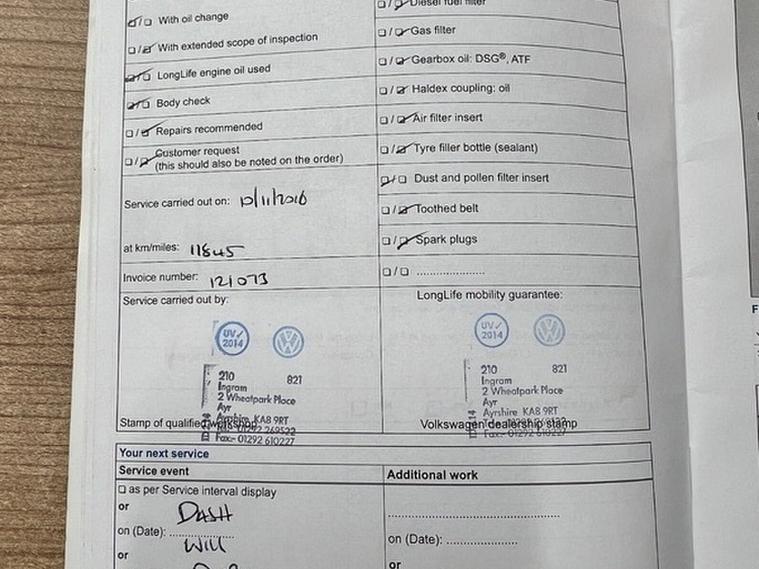 ☑/☐ With oil change
☐/☑ With extended scope of inspection
☑/☐ LongLife engine oil used
☑/☐ Body check
☐/☑ Repairs recommended
☐/☑ Customer request
(this should also be noted on the order)
Service carried out on: 10/11/2016
at km/miles: 11845
Invoice number: 121073
☐/☑ Diesel fuel filter
☐/☑ Gas filter
☐/☑ Gearbox oil: DSG®, ATF
☐/☑ Haldex coupling: oil
☐/☑ Air filter insert
☐/☑ Tyre filler bottle (sealant)
☑/☐ Dust and pollen filter insert
☐/☑ Toothed belt
☐/☑ Spark plugs
☐/☐ ......................
Service carried out by:
UV✓
2014
210 821
Ingram
2 Wheatpark Place
Ayr
Ayrshire KA8 9RT
Fax:- 01292 610227
Stamp of qualified workshop
LongLife mobility guarantee:
UV✓
2014
210 821
Ingram
2 Wheatpark Place
Ayr
Ayrshire KA8 9RT
Fax:- 01292 610227
Volkswagen dealership stamp
Your next service
Service event
☐ as per Service interval display
or
DASH
on (Date): ..................
WILL
or
Additional work
on (Date): ...................
or